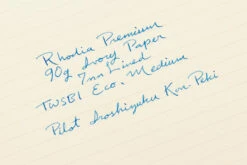 Rhodia Premium
90g Ivory Paper
7mm Lined
TWSBI Eco. Medium
Pilot Iroshizuku Kon-Peki